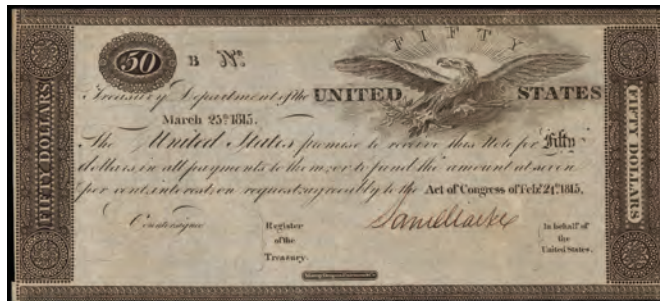 FIFTY
50 B No.
Treasury Department of the UNITED STATES
March 25th 1815.
The United States promise to receive this Note for Fifty
dollars in all payments to them, or to fund the amount at seven
per cent. interest, on request, agreeably to the Act of Congress of Feby. 24th 1815.
Countersigned
Register
of the
Treasury.
Sam Clarke
In behalf of
the
United States.
FIFTY DOLLARS
FIFTY DOLLARS